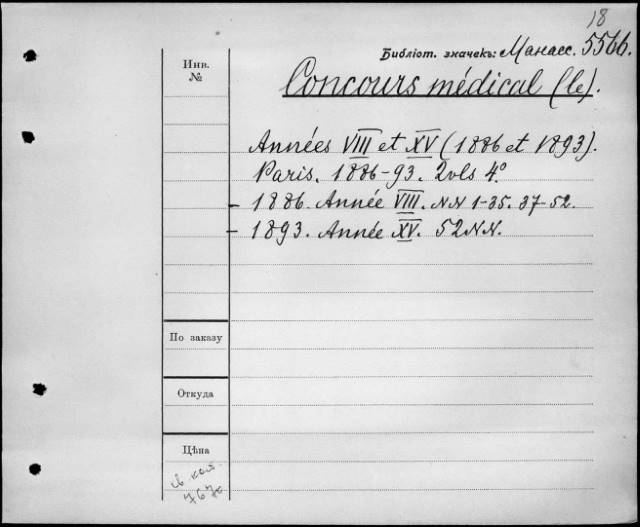 18
Библіот. значекъ: Манасс. 5566.
Инв.
№
Concours médical (le).
Années VIII et XV (1886 et 1893).
Paris. 1886-93. 2 vls 4º
- 1886. Année VIII. NN 1-35. 37-52.
- 1893. Année XV. 52 NN.
По заказу
Откуда
Цѣна